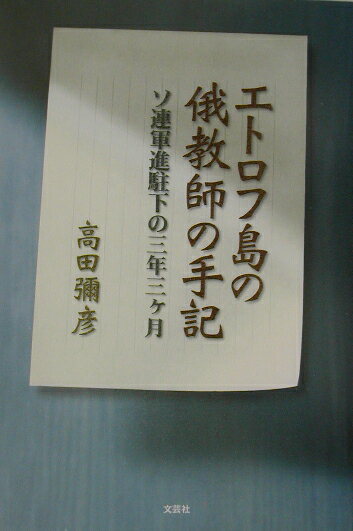 エトロフ島の
俄教師の手記
ソ連軍進駐下の三年三ヶ月
高田彌彦
文芸社